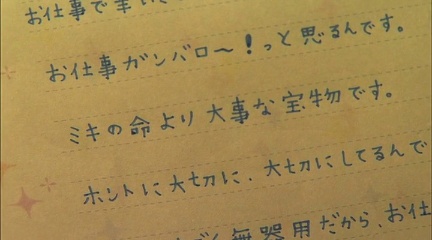 お仕事で辛い
お仕事ガンバロ〜！っと思るんです。
ミキの命より大事な宝物です。
ホントに大切に、大切にしてるんで
無器用だから、お仕